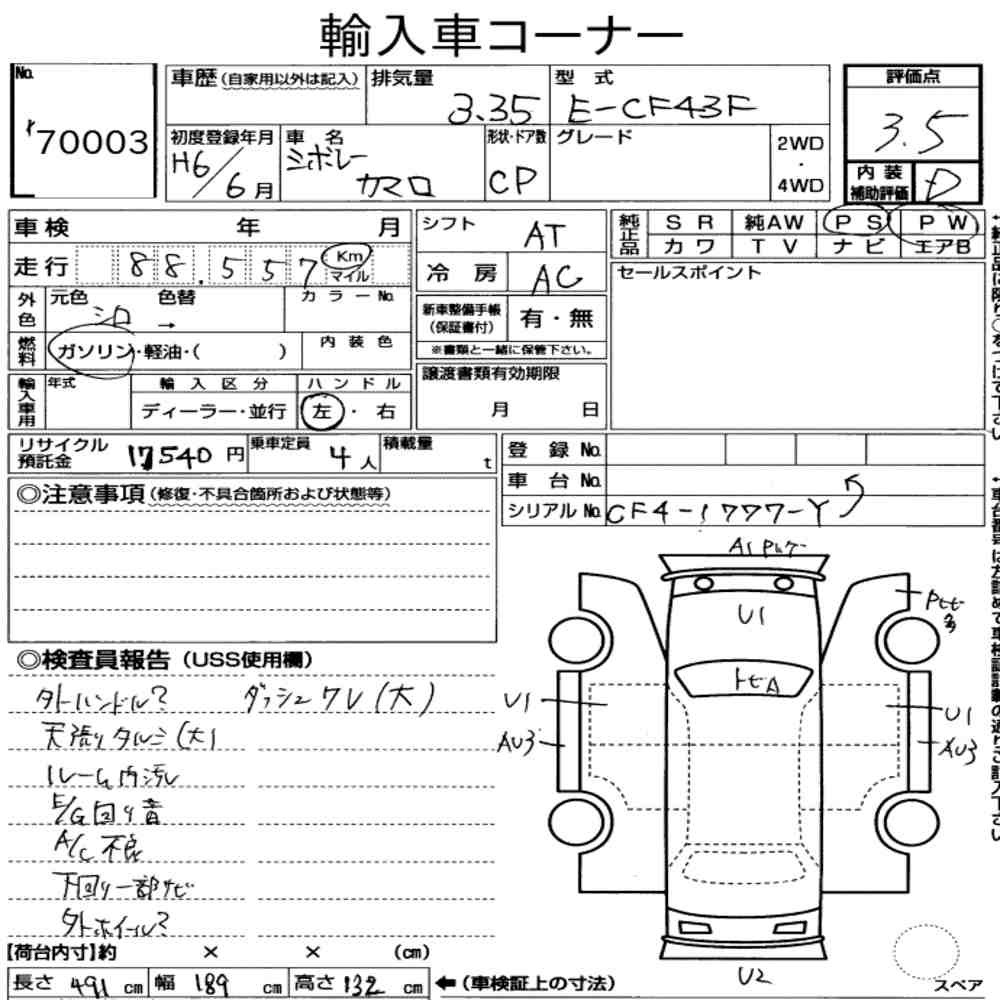 輸入車コーナー
No. 70003
車歴 (自家用以外は記入) 排気量 3.35 型式 E-CF43F
初度登録年月 H6/6月 車名 シボレー カマロ 形状・ドア数 CP グレード 2WD・4WD
評価点 3.5
内装補助評価 D
車検 年 月
走行 88,557 Km マイル
外色 元色 シロ 色替 → カラーNo.
燃料 ガソリン・軽油・( ) 内装色
輸入車用 年式 輸入区分 ディーラー・並行 ハンドル 左・右
シフト AT
冷房 AC
新車整備手帳(保証書付) 有・無
※書類と一緒に保管下さい。
譲渡書類有効期限
月 日
純正品 SR 純AW PS PW
カワ TV ナビ エアB
セールスポイント
リサイクル預託金 17540円 乗車定員 4人 積載量 t
登録No.
車台No.
シリアルNo. CF4-1777-Y
◎注意事項 (修復・不具合箇所および状態等)
◎検査員報告 (USS使用欄)
タトハンドル? ダッシュワレ(大)
天張りタルミ(大)
ルーム内汚レ
E/G回り音
A/C不良
下回り一部サビ
タトホイール?
A1
U1
トビA
U1
AU3
U1
AU3
U2
スペア
【荷台内寸】約 × × (cm)
長さ 491 cm 幅 189 cm 高さ 132 cm ←(車検証上の寸法)